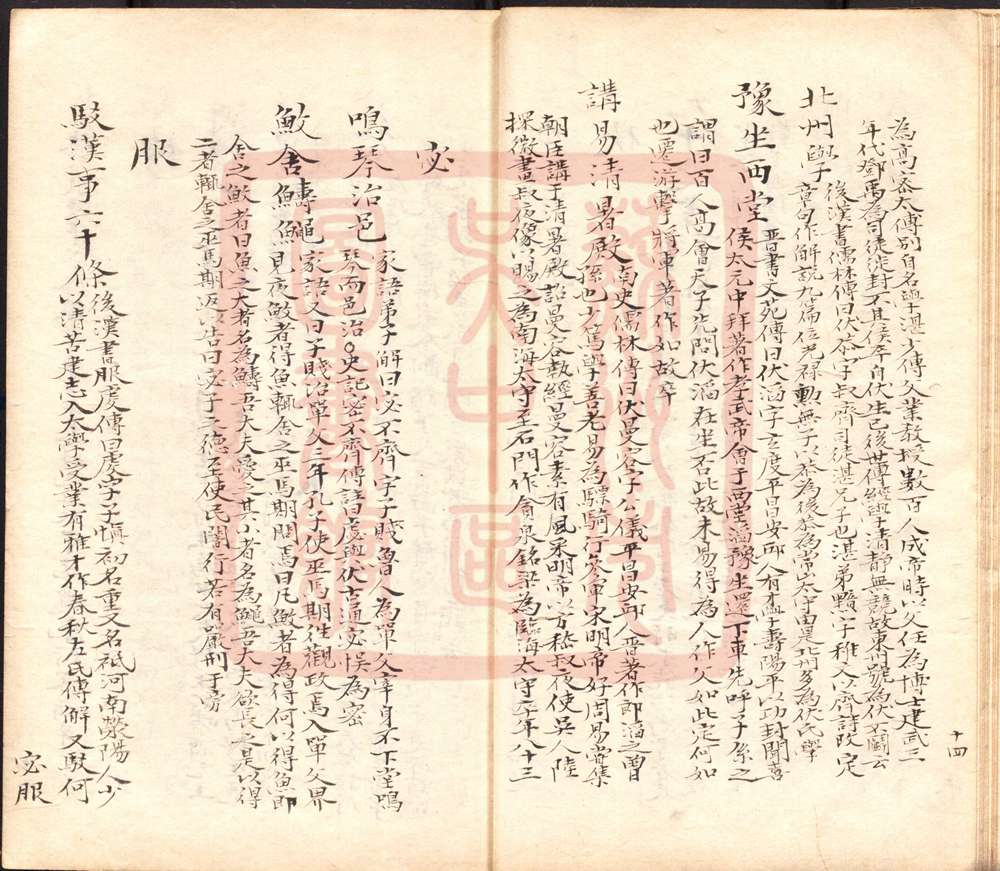 為高密太傅別自名學湛少傳父業教授數百人成帝時以父任為博士建武三
年代鄧禹為司徒徙封不其侯卒自伏生已後世傳經學清靜無競故東州號為伏不鬬云
北州學 後漢書儒林傳曰伏恭字叔齊司徒湛兄子也湛弟黯字稚文以齊詩改定
章句作解說九篇位光祿勳無子以恭為後恭為常山太守由是北州多為伏氏學
豫坐西堂 晋書文苑傳曰伏滔字玄度平昌安邱人有才學壽陽平以功封聞喜
侯太元中拜著作孝武帝會于西堂滔豫坐還下車先呼子系之
謂曰百人高會天子先問伏滔在坐否此故未易得為人作父如此定何如
也遷游擊將軍著作如故卒
講易清暑殿 南史儒林傳曰伏曼容字公儀平昌安邱人晋著作郎滔之曾
孫也少篤學善老易為驃騎行參軍宋明帝好周易嘗集
朝臣講于清暑殿詔曼容執經曼容素有風采明帝以方嵇叔夜使吳人陸
探微畫叔夜像以賜之為南海太守至石門作貪泉銘梁為臨海太守卒年八十三
十四
宓
鳴琴治邑 家語弟子解曰宓不齊字子賤魯人為單父宰身不下堂鳴
琴而邑治○史記密不齊傳諸日度與伏古通宓悞為密
魰舍鱄鱦 家語又曰子賤治單父三年孔子使巫馬期往觀政焉入單父界
見夜魰者得魚輒舍之巫馬期問焉曰凡魰者為得何以得魚即
舍之魰者曰魚之大者名為鱄吾大夫愛之其小者名為鱦吾大夫欲長之是以得
二者輒舍之巫馬期返以告曰宓子之德至使民闇行若有嚴刑于旁
服
駁漢事六十條 後漢書服虔傳曰虔字子慎初名重又名祇河南滎陽人少
以清苦建志入太學受業有雅才作春秋左氏傳解又駁何
宓服